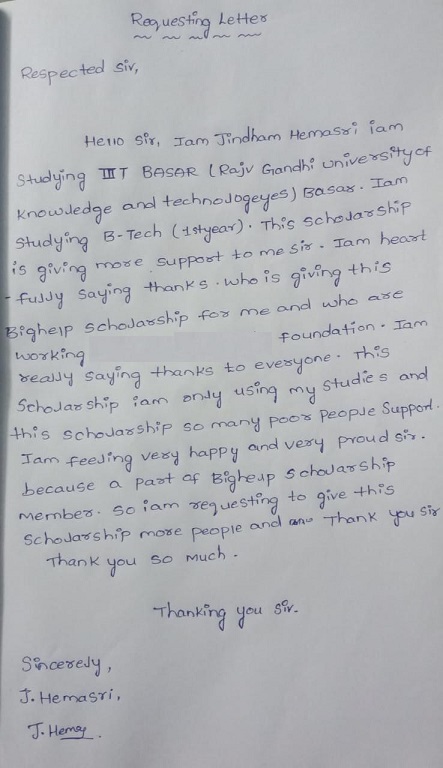 Requesting Letter
Respected Sir,
Hello Sir, Iam Jindham Hemasri iam
Studying IIIT BASAR (Rajv Gandhi university of
Knowledge and technologeyes) Basar. Iam
Studying B-Tech (1st year). This Scholarship
is giving more support to me sir. Iam heart
-fully Saying thanks. who is giving this
Bighelp Scholarship for me and who are
working foundation. Iam
really saying thanks to everyone. This
Scholarship iam only using my Studies and
this scholarship so many poor people Support.
Iam feeling very happy and very proud sir.
because a part of Bigheup Scholarship
Member. so iam requesting to give this
Scholarship more people and Thank you Sir
Thank you so much.
Thanking you Sir.
Sincerely,
J. Hemasri,
J. Hema